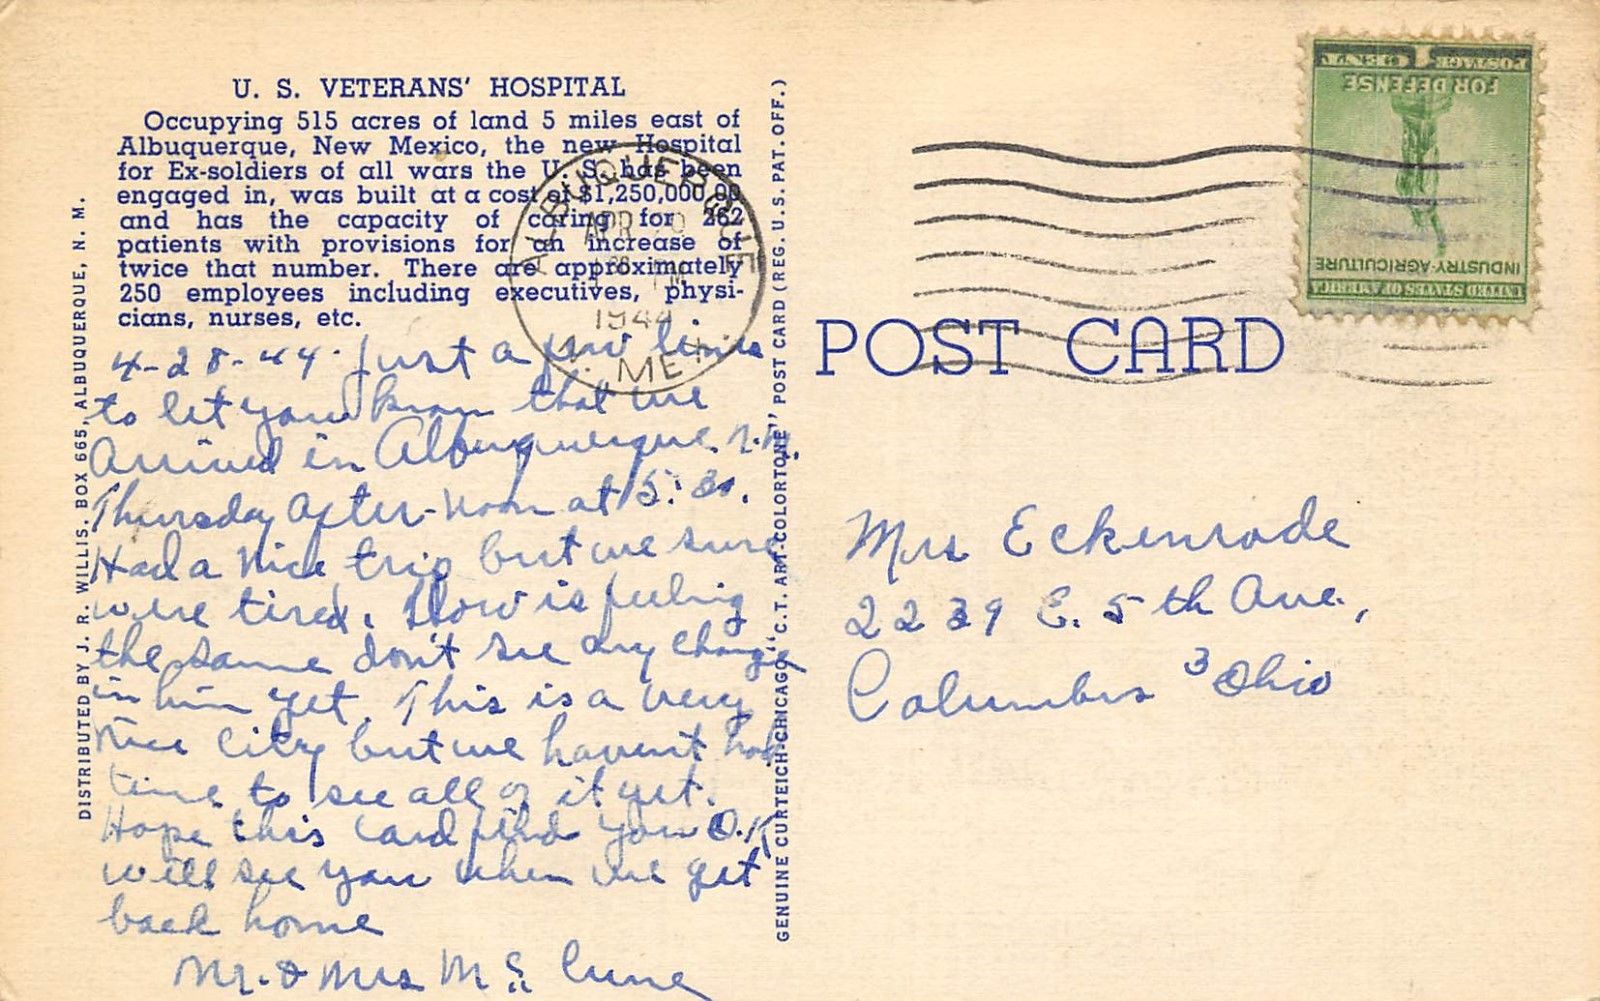 U. S. VETERANS' HOSPITAL
Occupying 515 acres of land 5 miles east of
Albuquerque, New Mexico, the new Hospital
for Ex-soldiers of all wars the U. S. has been
engaged in, was built at a cost of $1,250,000.00
and has the capacity of caring for 262
patients with provisions for an increase of
twice that number. There are approximately
250 employees including executives, physi-
cians, nurses, etc.
4-28-44. Just a few lines
to let you know that we
Arrived in Albuquerque. N.M.
Thursday After-noon at 5:30.
Had a Nice trip but we sure
were tired. Slow is feeling
the same don't see any change
in him yet. This is a very
Nice City but we havent had
time to see all of it yet.
Hope this card find you O.K
will see you when we get
back home
Mr. & Mrs McCune
DISTRIBUTED BY J. R. WILLIS, BOX 665, ALBUQUERQUE, N. M.
GENUINE CURTEICH-CHICAGO "C. T. ART-COLORTONE" POST CARD (REG. U. S. PAT. OFF.)
ALBUQUERQUE
APR 29
PM
1944
N. MEX.
POST CARD
1 CENT
POSTAGE
FOR DEFENSE
INDUSTRY-AGRICULTURE
UNITED STATES OF AMERICA
Mrs Eckenrode
2239 E. 5th Ave.,
Columbus 3 Ohio